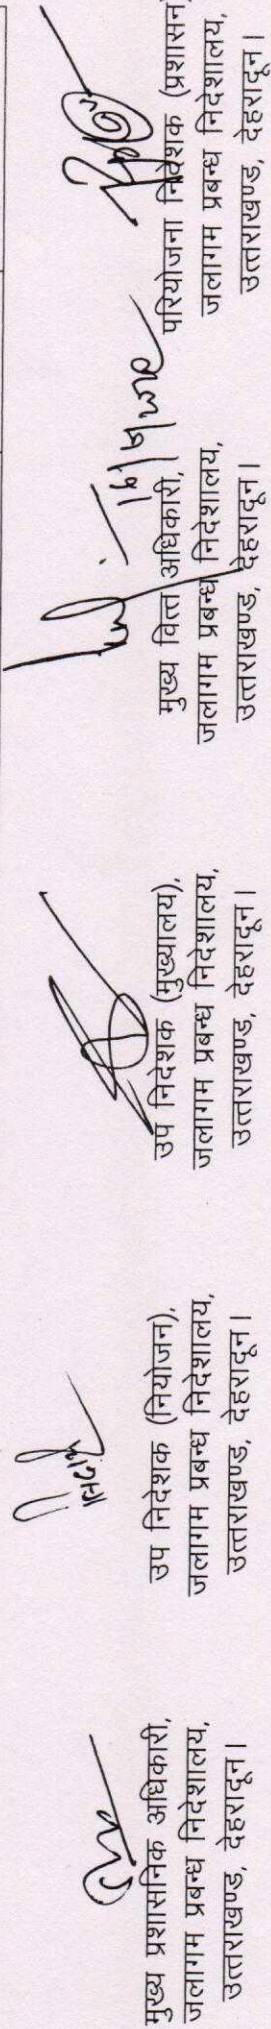 मुख्य प्रशासनिक अधिकारी,
जलागम प्रबन्ध निदेशालय,
उत्तराखण्ड, देहरादून।
उप निदेशक (नियोजन),
जलागम प्रबन्ध निदेशालय,
उत्तराखण्ड, देहरादून।
उप निदेशक (मुख्यालय),
जलागम प्रबन्ध निदेशालय,
उत्तराखण्ड, देहरादून।
मुख्य वित्त अधिकारी,
जलागम प्रबन्ध निदेशालय,
उत्तराखण्ड, देहरादून।
परियोजना निदेशक (प्रशासन)
जलागम प्रबन्ध निदेशालय,
उत्तराखण्ड, देहरादून।